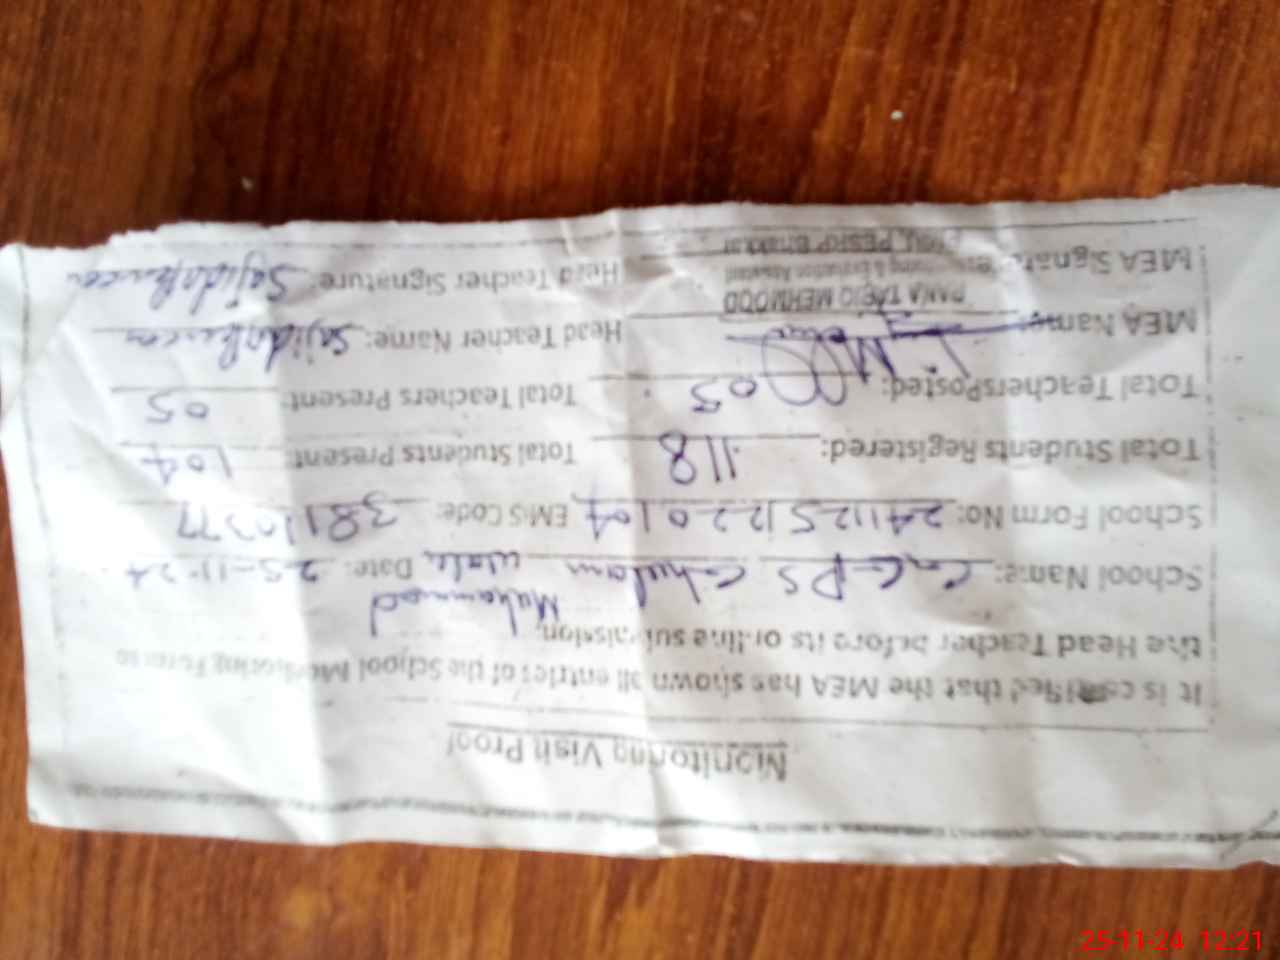 Monitoring Visit Proof
It is certified that the MEA has shown all entries of the School Monitoring Form to
the Head Teacher before its online submission.
Muhammad
School Name: GGPS Ghulam Wala Date: 25-11-24
School Form No: 2411251220104 EMIS Code: 38110377
Total Students Registered: 118 Total Students Present: 104
Total Teachers Posted: 05 Total Teachers Present: 05
MEA Name: Head Teacher Name: Sajida Parveen
RANA TARIQ MEHMOOD
Monitoring & Evaluation Assistant
MEA Signature: Head Teacher Signature: Sajida Parveen
PESRP Bhakkar
25-11-24 12:21